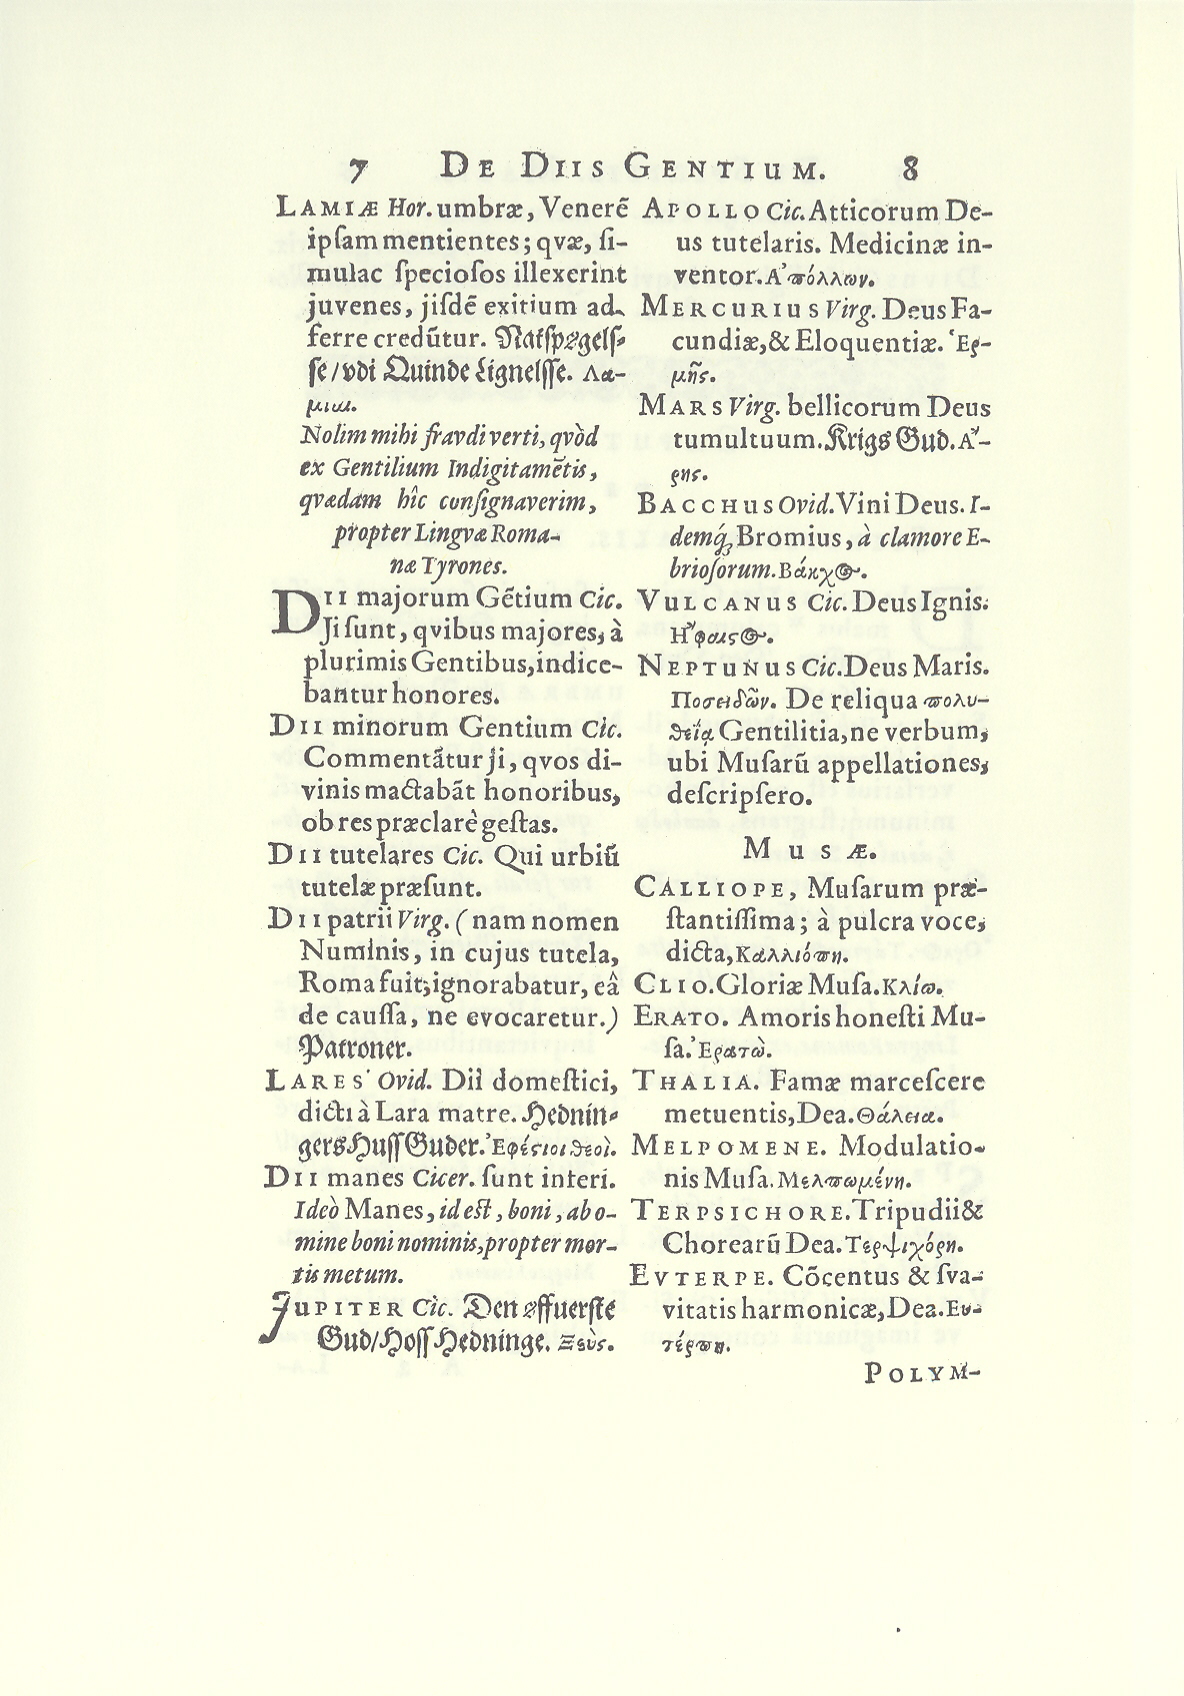 7 DE DIIS GENTIUM. 8
LAMIÆ Hor. umbræ, Venerẽ
ipſam mentientes; qvæ, ſi-
mulac ſpecioſos illexerint
juvenes, jiſdẽ exitium ad-
ferre credũtur. Natſpøgelſ-
ſe/ vdi Quinde Lignelſſe. Λα-
μιαι.
Nolim mihi fravdi verti, qvòd
ex Gentilium Indigitamẽtis,
qvædam hîc conſignaverim,
propter Lingvæ Roma-
næ Tyrones.
DII majorum Gẽtium Cic.
Ji ſunt, qvibus majores, à
plurimis Gentibus, indice-
bantur honores.
DII minorum Gentium Cic.
Commentãtur ji, qvos di-
vinis mactabãt honoribus,
ob res præclarè geſtas.
DII tutelares Cic. Qui urbiũ
tutelæ præſunt.
DII patrii Virg. (nam nomen
Numinis, in cujus tutela,
Roma fuit, ignorabatur, eâ
de cauſſa, ne evocaretur.)
Patroner.
LARES Ovid. Dii domeſtici,
dicti à Lara matre. Hednin-
gers Huſſ Guder. Ἐφέϛιοι θεοὶ.
DII manes Cicer. ſunt interi.
Ideò Manes, id eſt, boni, ab o-
mine boni nominis, propter mor-
tis metum.
JUPITER Cic. Den øffuerſte
Gud/ Hoſſ Hedninge. Ξεὺς.
APOLLO Cic. Atticorum De-
us tutelaris. Medicinæ in-
ventor. Ἀϖόλλων.
MERCURIUS Virg. Deus Fa-
cundiæ, & Eloquentiæ. Ἑρ-
μῆς.
MARS Virg. bellicorum Deus
tumultuum. Krigs Gud. Ἄ-
ρης.
BACCHUS Ovid. Vini Deus. I-
demq́; Bromius, à clamore E-
brioſorum. Βάκχος.
VULCANUS Cic. Deus Ignis.
Ἥφαιϛος.
NEPTUNUS Cic. Deus Maris.
Ποσειδῶν. De reliqua ϖολυ-
θείᾳ Gentilitia, ne verbum,
ubi Muſarũ appellationes,
deſcripſero.
MUSÆ.
CALLIOPE, Muſarum præ-
ſtantiſſima; à pulcra voce,
dicta, Καλλιόϖη.
CLIO. Gloriæ Muſa. Κλίω.
ERATO. Amoris honeſti Mu-
ſa. Ἐρατὼ.
THALIA. Famæ marceſcere
metuentis, Dea. Θάλεια.
MELPOMENE. Modulatio-
nis Muſa. Μελϖωμένη.
TERPSICHORE. Tripudii &
Chorearũ Dea. Τερψιχόρη.
EVTERPE. Cõcentus & ſva-
vitatis harmonicæ, Dea. Ευ-
τέρϖη.
POLYM-